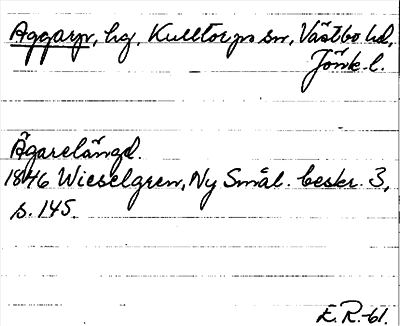 Aggarp, hg. Kulltorps sn, Västbo hd,
Jönk. l.
Ägarelängd.
1846 Wieselgren, Ny Smål. beskr. 3,
s. 145.
E.R.-61.